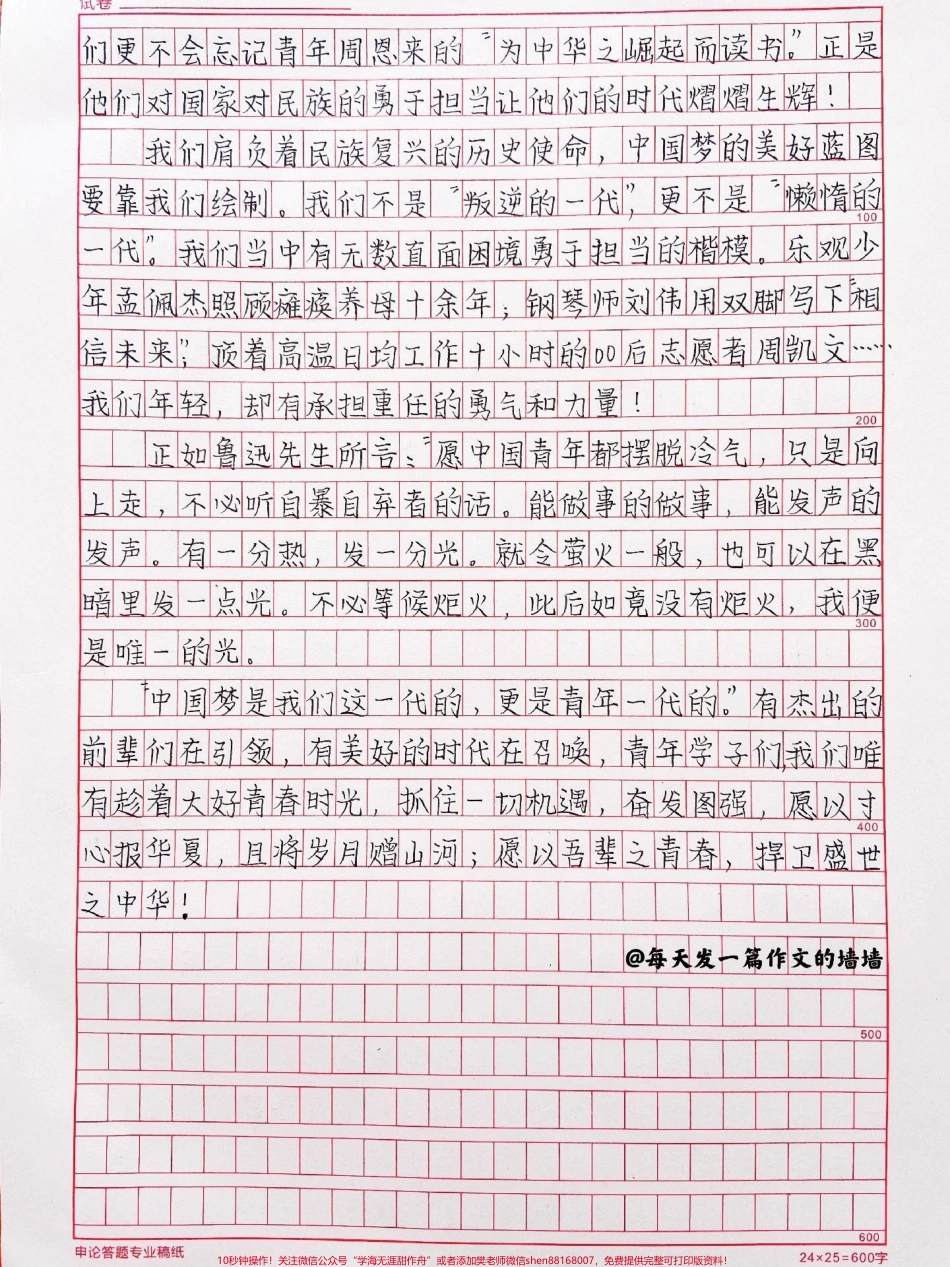 试卷
们更不会忘记青年周恩来的“为中华之崛起而读书。”正是
他们对国家对民族的勇于担当让他们的时代熠熠生辉！
我们肩负着民族复兴的历史使命，中国梦的美好蓝图
要靠我们绘制。我们不是“叛逆的一代”，更不是“懒惰的
100
一代”。我们当中有无数直面困境勇于担当的楷模。乐观少
年孟佩杰照顾瘫痪养母十余年；钢琴师刘伟用双脚写下“相
信未来”；顶着高温日均工作十小时的00后志愿者周凯文……
我们年轻，却有承担重任的勇气和力量！
200
正如鲁迅先生所言：“愿中国青年都摆脱冷气，只是向
上走，不必听自暴自弃者的话。能做事的做事，能发声的
发声。有一分热，发一分光。就令萤火一般，也可以在黑
暗里发一点光。不必等候炬火，此后如竟没有炬火，我便
300
是唯一的光。
“中国梦是我们这一代的，更是青年一代的。”有杰出的
前辈们在引领，有美好的时代在召唤，青年学子们，我们唯
有趁着大好青春时光，抓住一切机遇，奋发图强，愿以寸
400
心报华夏，且将岁月赠山河；愿以吾辈之青春，捍卫盛世
之中华！
@每天发一篇作文的墙墙
500
600
申论答题专业稿纸
24×25=600字
10秒钟操作！关注微信公众号“学海无涯甜作舟”或者添加樊老师微信shen88168007，免费提供完整可打印版资料！